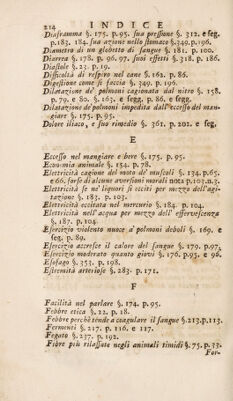 214 INDICE
Diaframma §. 175. p.95. sua pressione §. 312. e seg.
p.183. 184. sua azione nello stomaco §.349.p.196.
Diametri di un globetto di sangue §. 181. p. 100.
Diarrea §. 178. p. 96. 97. suoi effetti §. 318. p. 186.
Diastole §. 23. p. 19.
Difficoltà di respiro nel cane §. 162. p. 86.
Digestione come si faccia §. 349. p. 196.
Dilatazione de' polmoni cagionata dal nitro §. 158.
p. 79. e 80. §. 163. e segg. p. 86. e segg.
Dilatazione de' polmoni impedita dall'eccesso del man-
giare §. 175. p. 95.
Dolore iliaco, e suo rimedio §. 361. p. 202. e seg.
E
Eccesso nel mangiare e bere §. 175. p. 95.
Economia animale §. 154. p. 78.
Elettricità cagione del moto de' muscoli §. 134. p.65.
e 66. forse di alcune avversioni morali nota p.102.n.3.
Elettricità se ne' liquori si ecciti per mezzo dell'agi-
tazione §. 183. p. 103.
Elettricità eccitata nel mercurio §. 184. p. 104.
Elettricità nell'acqua per mezzo dell'effervescenza
§. 187. p. 104.
Esercizio violento nuoce a' polmoni deboli §. 169. e
seg. p. 89.
Esercizio accresce il calore del sangue §. 179. p.97.
Esercizio moderato quanto giovi §. 176. p.95. e 96.
Esofago §. 353. p. 198.
Estremità arteriose §. 283. p. 171.
F
Facilità nel parlare §. 174. p. 95.
Febbre etica §. 22. p. 18.
Febbre perchè tende a coagulare il sangue §.213.p.113.
Fermenti §. 217. p. 116. e 117.
Fegato §. 237. p. 192.
Fibre più rilassate negli animali timidi §. 75. p.33.
For-